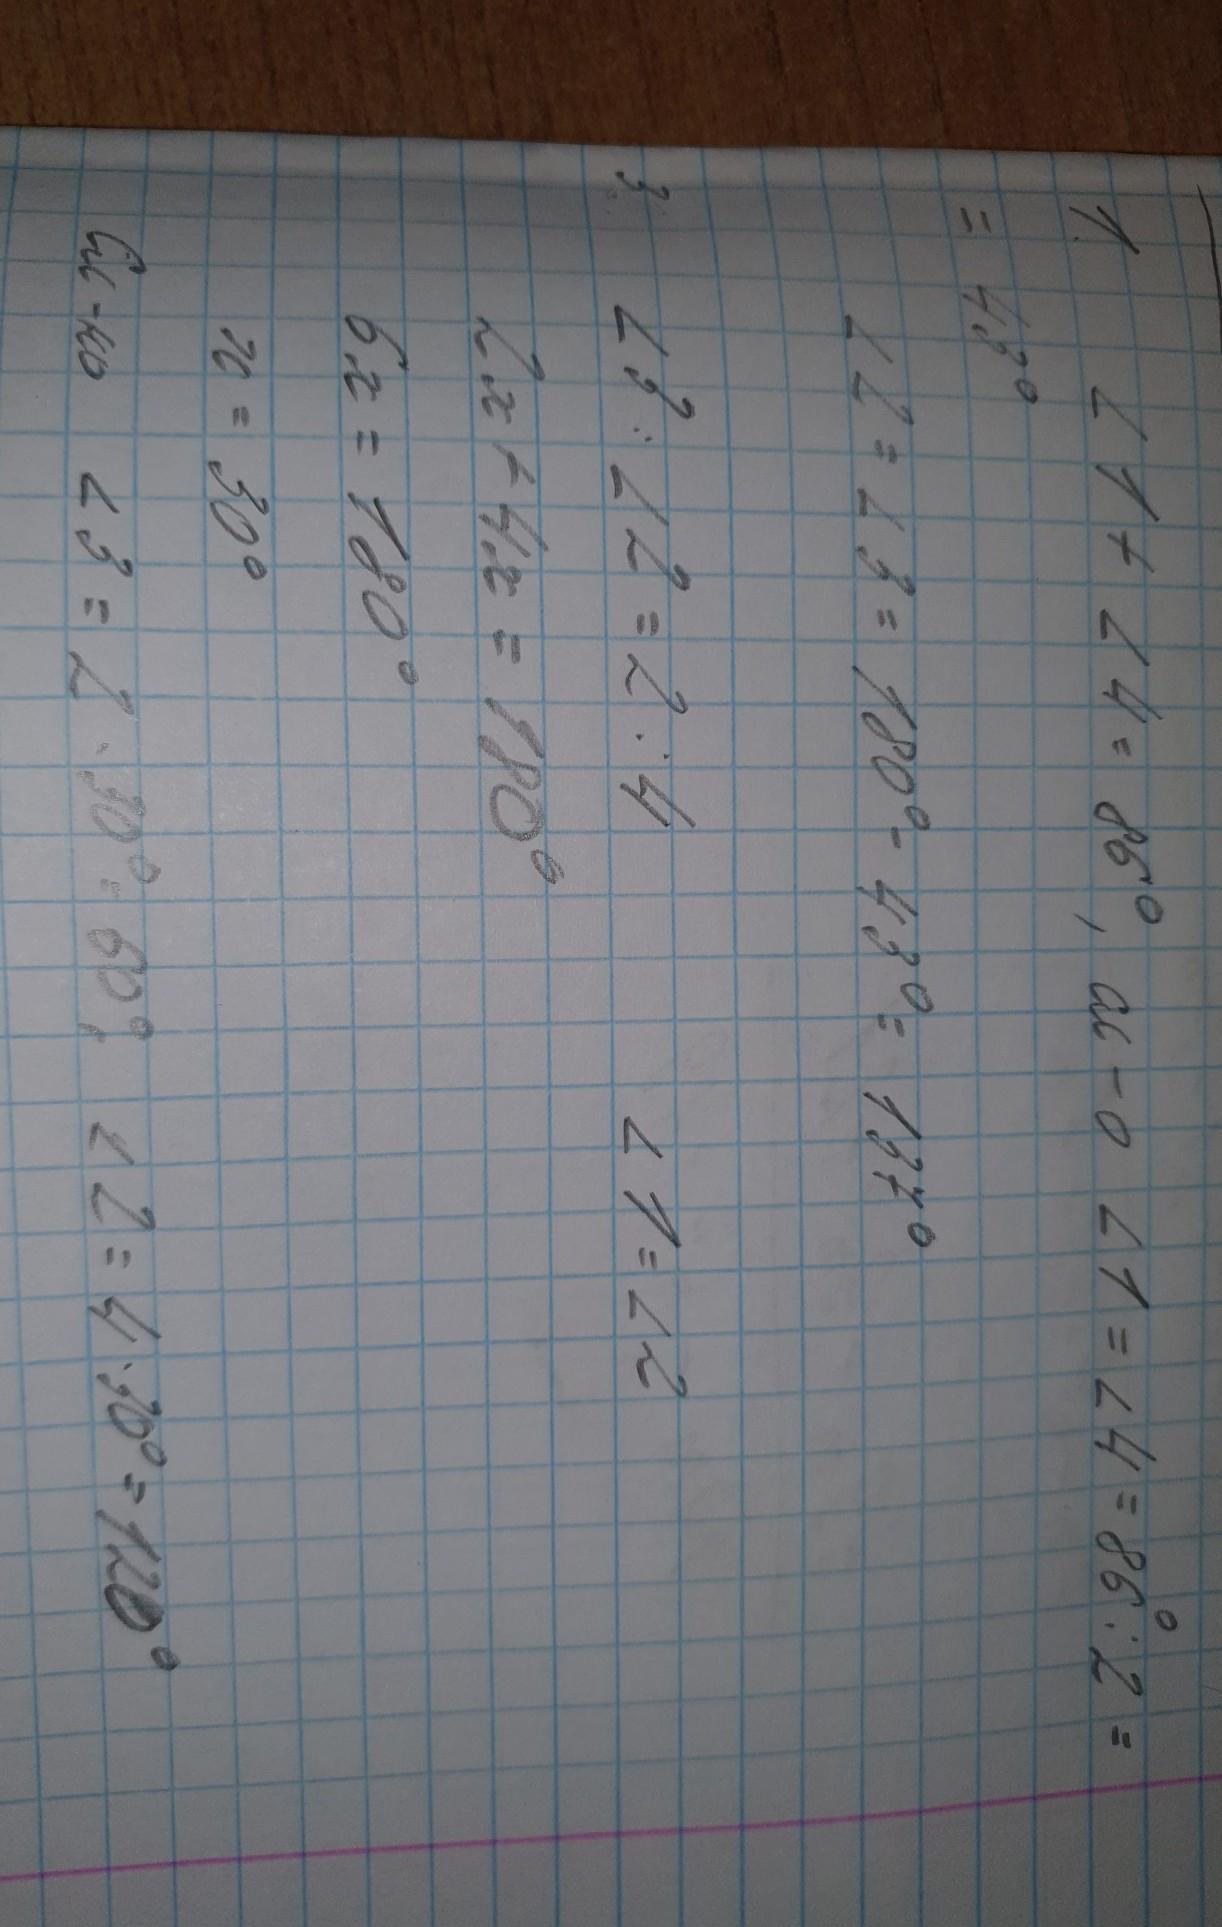 1. ∠1 + ∠4 = 86°, ал-о ∠1 = ∠4 = 86° : 2 =
= 43°
∠2 = ∠3 = 180° - 43° = 137°
3. ∠3 : ∠2 = 2 : 4 ∠1 = ∠2
2x + 4x = 180°
6x = 180°
x = 30°
∠3 = 2 · 30° = 60°, ∠2 = 4 · 30° = 120°